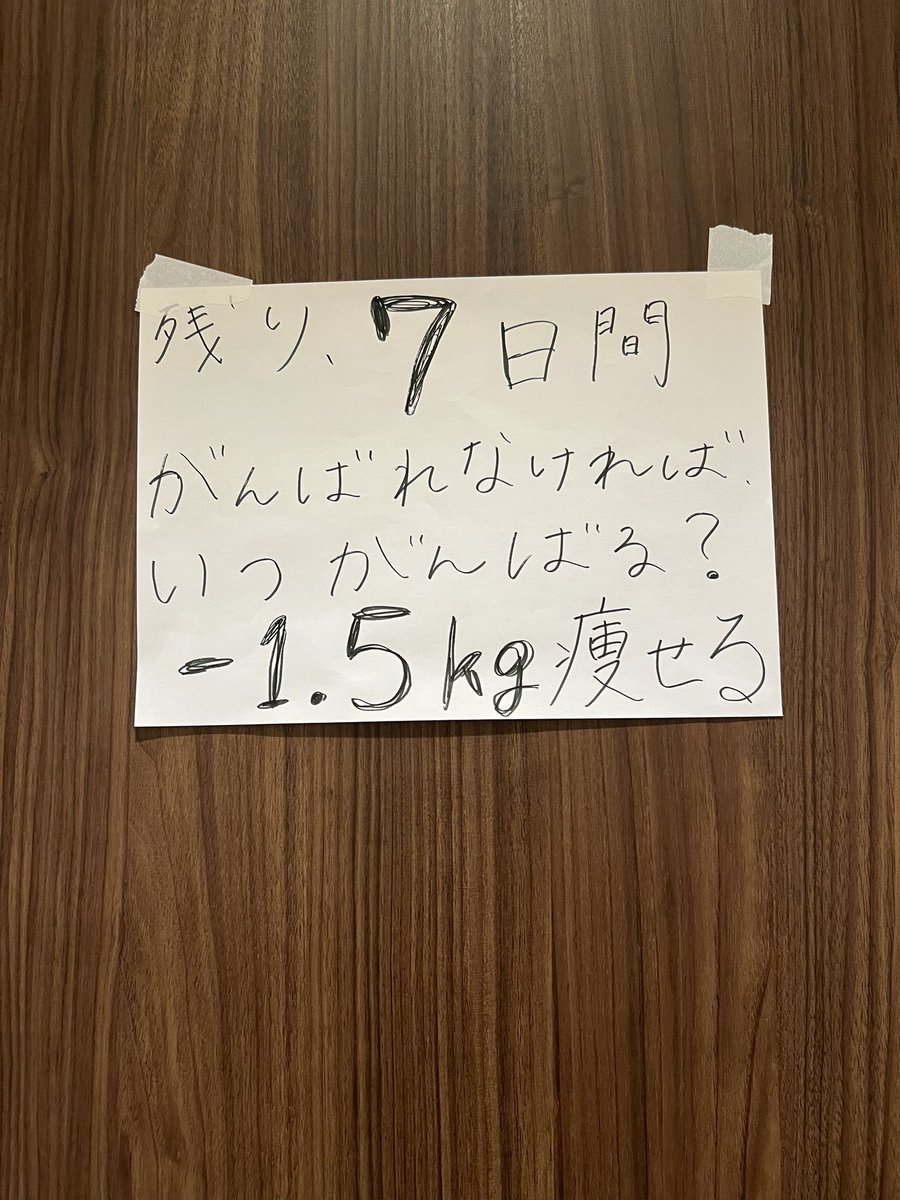 残り、7日間
がんばれなければ、
いつがんばる?
-1.5kg痩せる